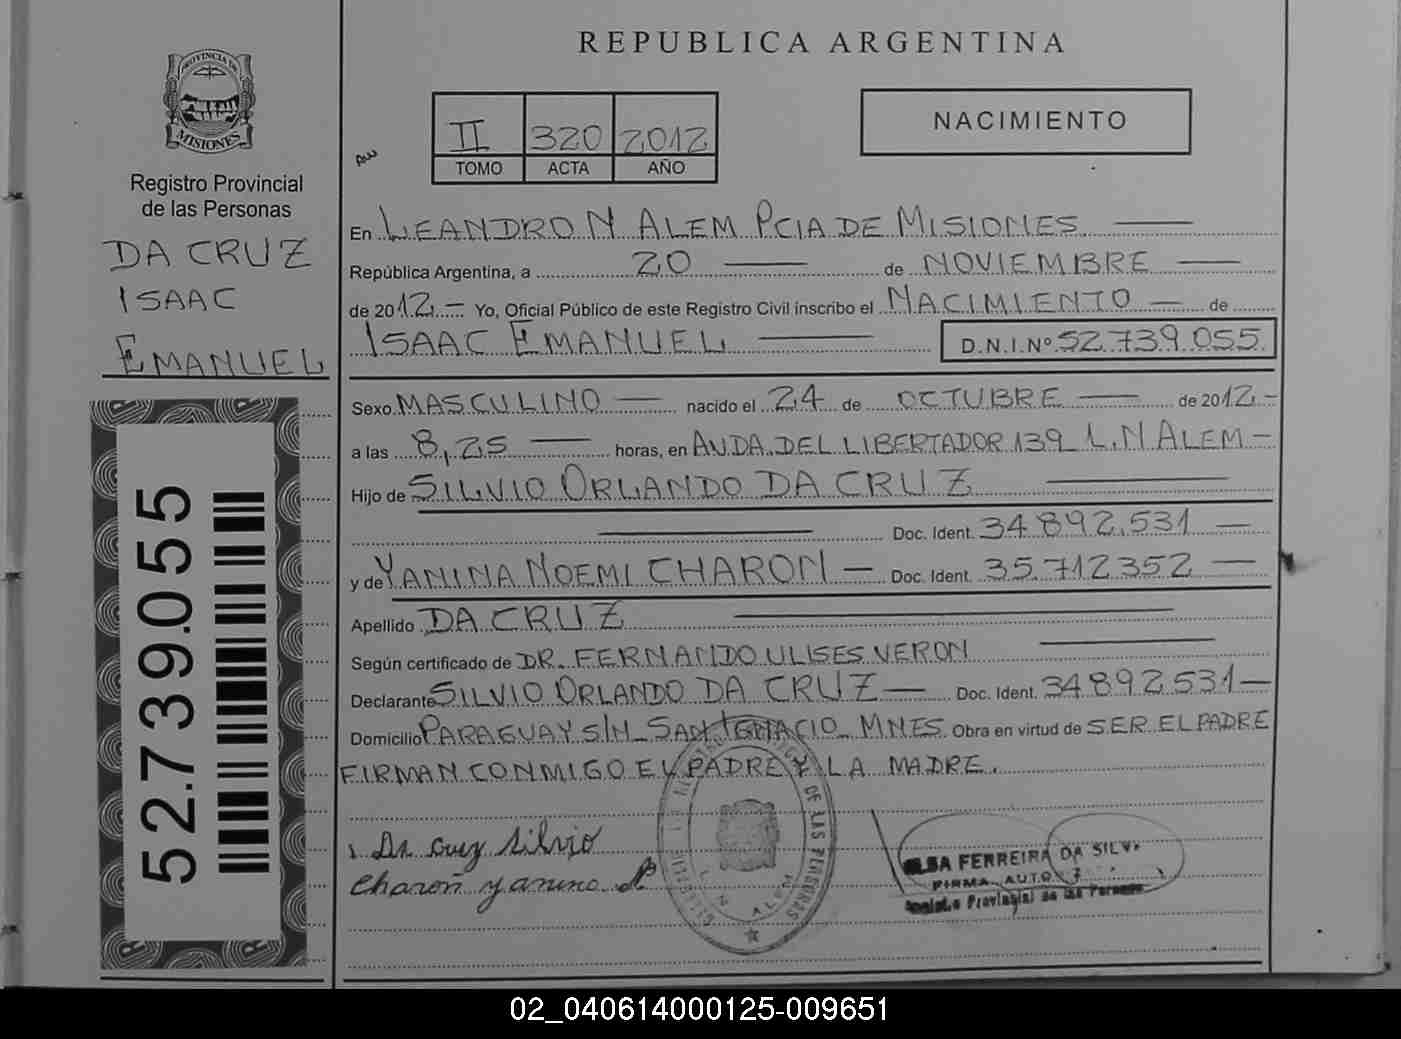 REPUBLICA ARGENTINA
PROVINCIA DE
MISIONES
Registro Provincial
de las Personas
DA CRUZ
ISAAC
EMANUEL
52.739.055
II 320 2012
TOMO ACTA AÑO
NACIMIENTO
En LEANDRO N ALEM PCIA DE MISIONES
República Argentina, a 20 de NOVIEMBRE
de 2012.- Yo, Oficial Público de este Registro Civil inscribo el NACIMIENTO de
ISAAC EMANUEL D.N.I.Nº 52.739.055
Sexo MASCULINO nacido el 24 de OCTUBRE de 2012.-
a las 8,25 horas, en AVDA. DEL LIBERTADOR 139 L.N ALEM -
Hijo de SILVIO ORLANDO DA CRUZ
Doc. Ident. 34892.531
y de YANINA NOEMI CHARON - Doc. Ident. 35.712352
Apellido DA CRUZ
Según certificado de DR. FERNANDO ULISES VERON
Declarante SILVIO ORLANDO DA CRUZ - Doc. Ident. 34892531-
Domicilio PARAGUAY S/N SAN IGNACIO MNES. Obra en virtud de SER EL PADRE
FIRMAN CONMIGO EL PADRE Y LA MADRE.
Da cruz Silvio
Charon yanina
DE LAS PERSONAS
L. N. ALEM
ELSA FERREIRA DA SILVA
FIRMA AUTO
Registro Provincial de las Personas
02_040614000125-009651